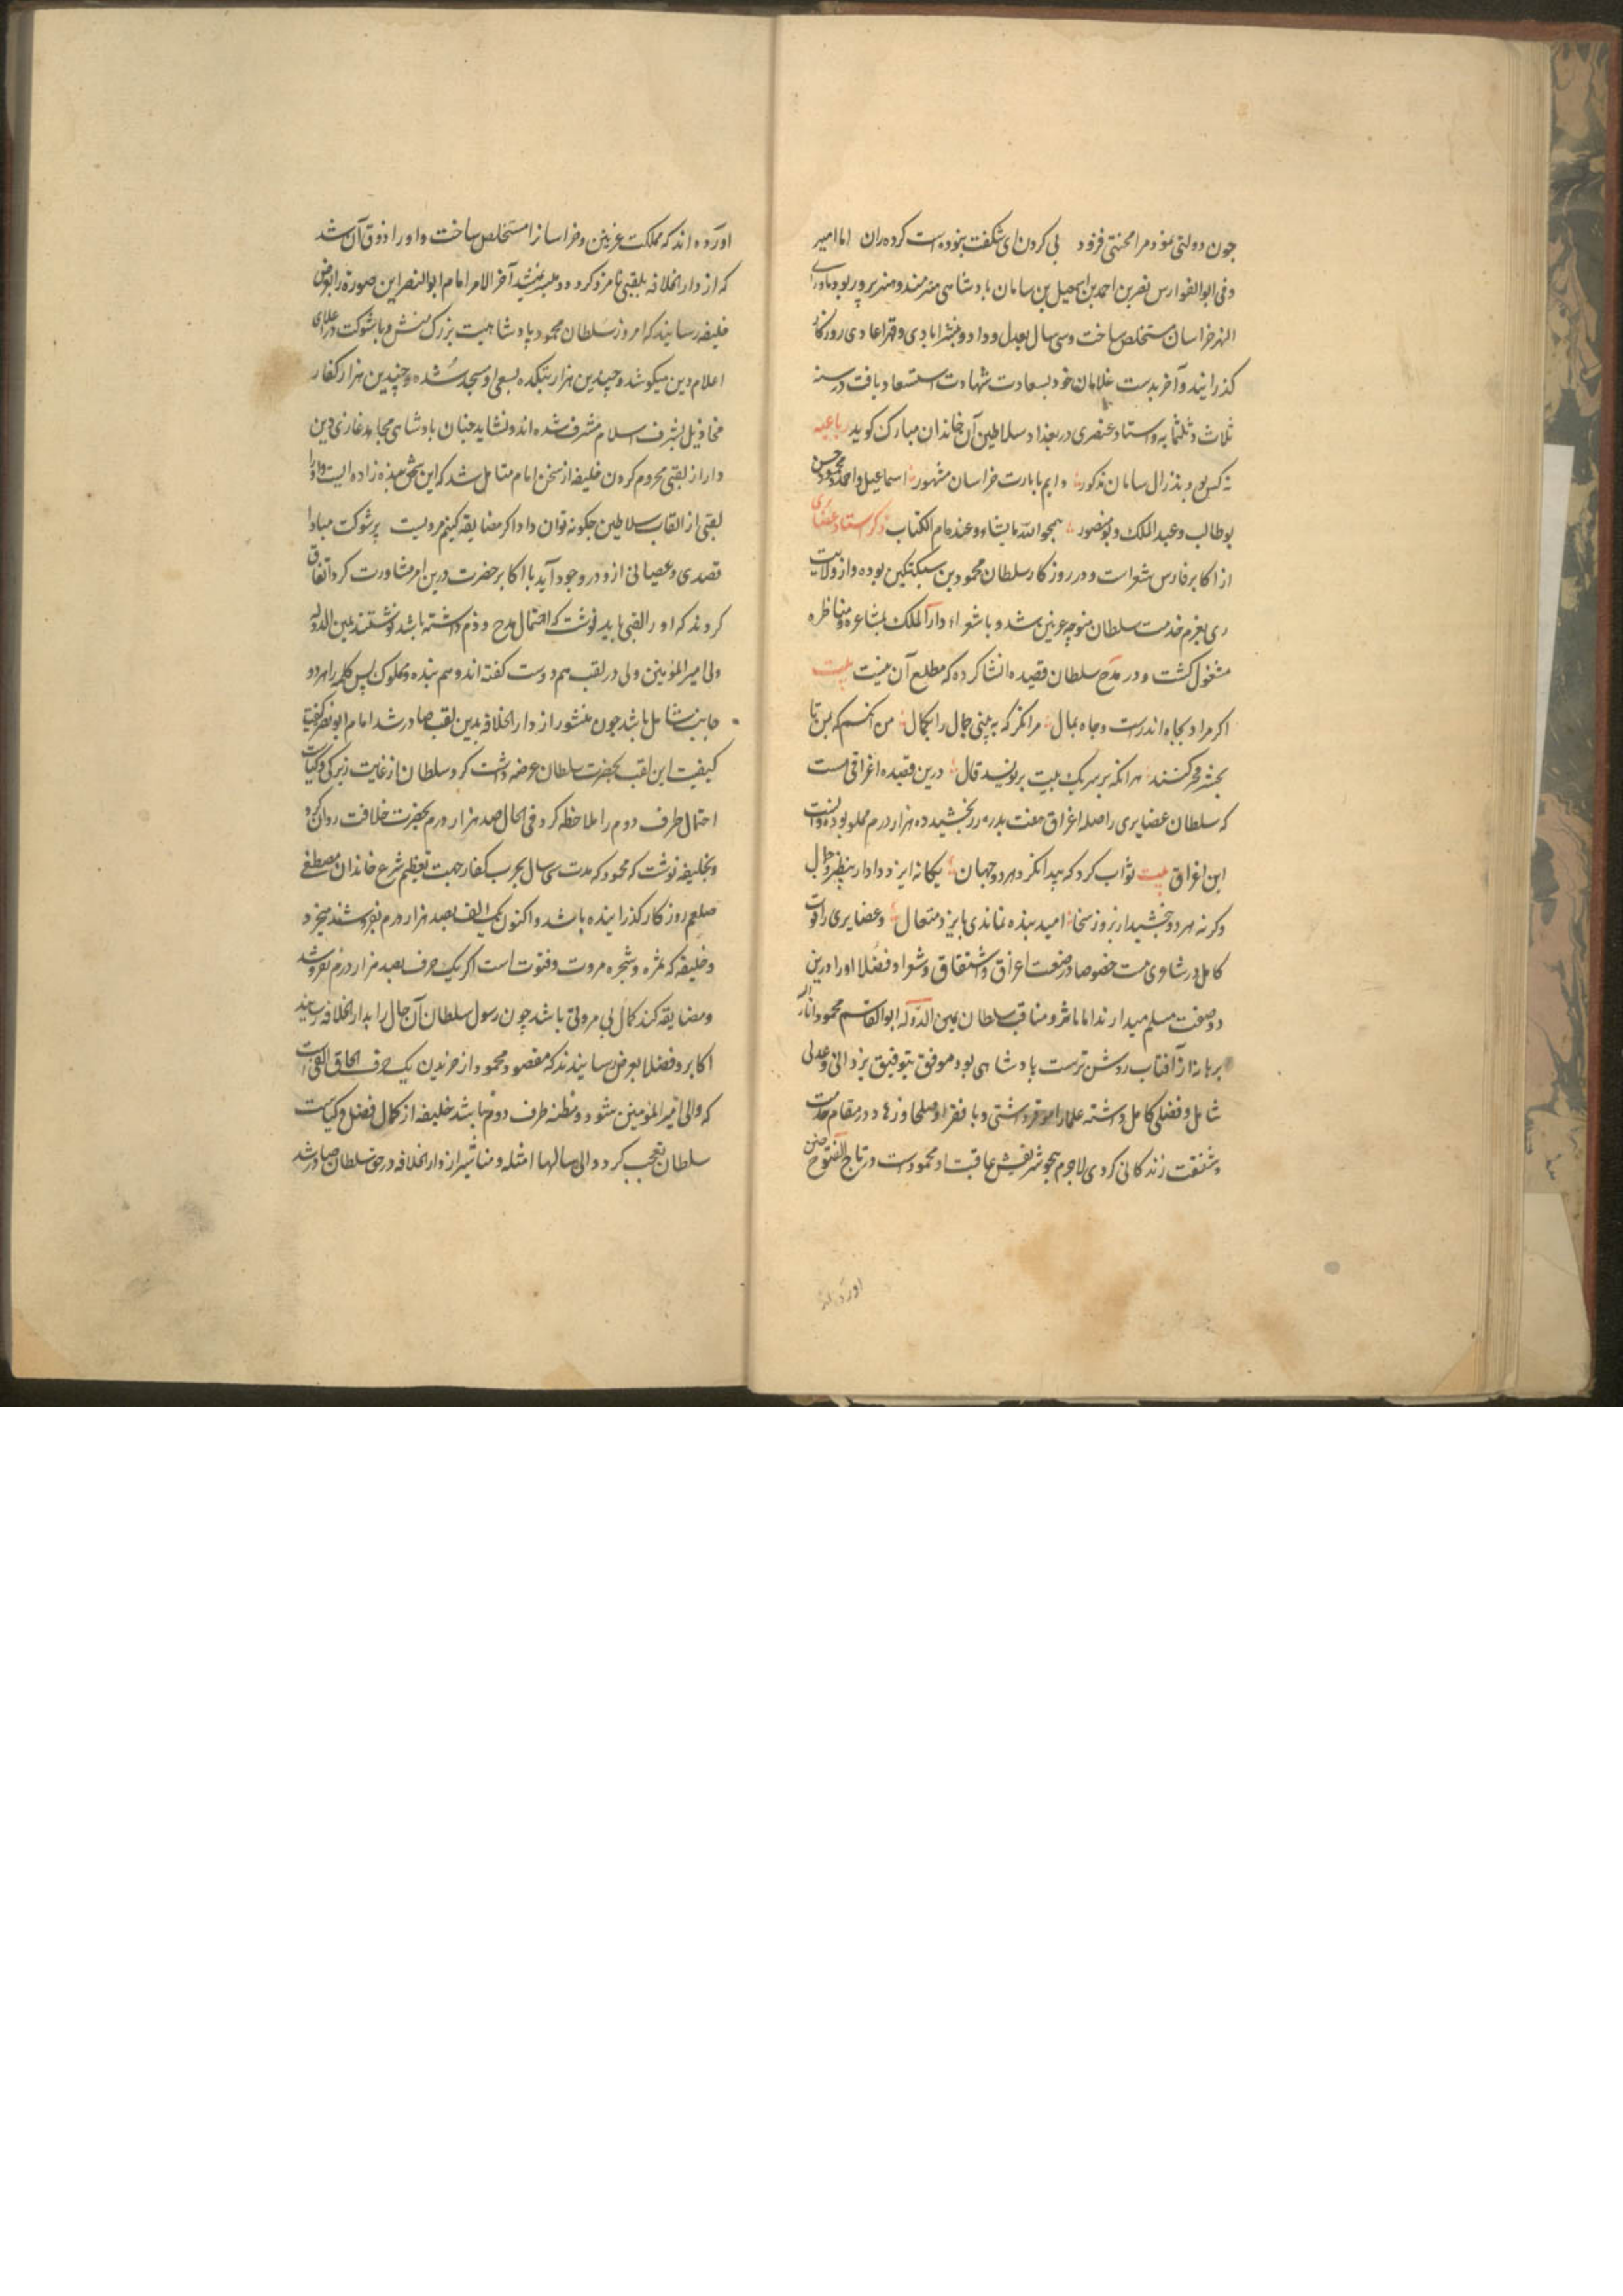 چون دولتی نمود مرا محنتی فزود بی کردن ای شگفت نبوده است کرده ران اما امیر
وفی ابوالفوارس نصر بن احمد بن اسمعیل بن سامان پادشاهی هنرمند و هنرپرور بود و ماورا
النهر خراسان مستخلص ساخت و سی سال بعدل و داد و بنشر ایادی و قهر اعادی روزکار
کذرانید و آخر بدست غلامان خود بسعادت شهادت استسعاد یافت در سنه
ثلاث و ثلثمایه و استاد عنصری در بغداد سلاطین آن خاندان مبارک کوید رباعیه
نه کس بودند ز ال سامان مذکور دایم بامارت خراسان مشهور اسماعیل و احمد و
بوطالب و عبدالملک و بومنصور یمحو الله ما یشاء و عنده ام الکتاب ذکر استاد عضایری
از اکابر فارس شعراست و در روزکار سلطان محمود بن سبکتکین بوده و از ولایت
ری بعزم خدمت سلطان متوجه غزنین شد و با شعراء دار الملک بمشاعره و مناظره
مشغول کشت و در مدح سلطان قصیده انشا کرده که مطلع آن اینست بیت
اکر مراد بجاه اندرست و جاه بمال مرا نکر که به بینی جمال را بکمال من آنکسم که بمن تا
بحشر فخر کنند هر انکه بر سر یک بیت بر نویسد قال درین قصیده اغراقی هست
که سلطان عضایری را صله اغراق هفت بدره زر بخشید ده هزار درم مملو بوده و انست
این اغراق بیت ثواب کرد که پیدا نکرد هر دو جهان یکانه ایزد دادار بی نظیر و همال
وکرنه هر دو ببخشیدی او بروز سخا امید بنده نماندی بایزد متعال و عضایری را قوت
کامل در شاعری هست خصوصا در صنعت اغراق و اشتقاق و شعرا و فضلا او را درین
دو صنعت مسلم میدارند اما ماثر و مناقب سلطان یمین الدوله ابوالقاسم محمود انار الله
برهانه از آفتاب روشن ترست پادشاهی بود موفق بتوفیق یزدانی و عدلی
شامل و فضلی کامل داشته علما را موقر داشتی و با فقرا و صلحا و زهاد در مقام خدمت
و شفقت زندکانی کردی لاجرم همچو نام شریفش عاقبت او محمودست در تاج الفتوح چنین
آورده اند
آورده اند که مملکت غزنین و خراسان را مستخلص ساخت و او را ذوق آن شد
که از دار الخلافه بلقبی نامزد کردد میشد آخر الامر امام ابوالنصر این صورة را بعرض
خلیفه رسانید که امروز سلطان محمود پادشاهیست بزرک منش و با شوکت در اعلای
اعلام دین میکوشد و چندین هزار بتکده بسعی او مسجد شده و چندین هزار کفار
مخاذیل بشرف اسلام مشرف شده اند و نشاید چنان پادشاهی مجاهد غازی دین
دار از لقبی محروم کردن خلیفه از سخن امام متامل شد که این شخص بنده زاده ایست و او را
لقبی از القاب سلاطین چکونه توان داد اکر مضایقه کنیم مردیست پر شوکت مبادا
قصدی و عصیانی از و در وجود آید با اکابر حضرت درین امر مشاورت کرد اتفاق
کردند که او را لقبی باید نوشت که احتمال مدح و ذم داشته باشد نوشتند یمین الدوله
ولی امیر المؤمنین ولی در لقب هم دوست کفته اند و هم بنده و مملوک پس کلمه را هر دو
جانب شامل باشد چون منشور از دار الخلافه بدین لقب صادر شد امام ابونصر
کیفیت این لقب بحضرت سلطان عرضه داشت کرد سلطان از غایت زیرکی و کیاست
احتمال طرف دوم را ملاحظه کرد فی الحال صد هزار درم بحضرت خلافت روان کرد
و بخلیفه نوشت که محمود که مدت سی سال بحرب کفار جهت تعظیم شرع خاندان مصطفی
صلعم روزکار کذرانیده باشد و اکنون یک الف بصد هزار درم بفروشند میخرد
و خلیفه که ثمره و شجره مروت و فتوت است اکر یک حرف بصد هزار درم نفروشد
و مضایقه کند کمال بی مروتی باشد چون رسول سلطان آن حال را بدار الخلافه رسانید
اکابر و فضلا بعرض رسانیدند که مقصود محمود از خریدن یک حرف الحاق الف است
که والی امیر المؤمنین شود و مظنه طرف دوم نباشد خلیفه از کمال فضل و کیاست
سلطان تعجب کرد و الی سالها امثله و مناشیر از دار الخلافه در حق سلطان صادر شد